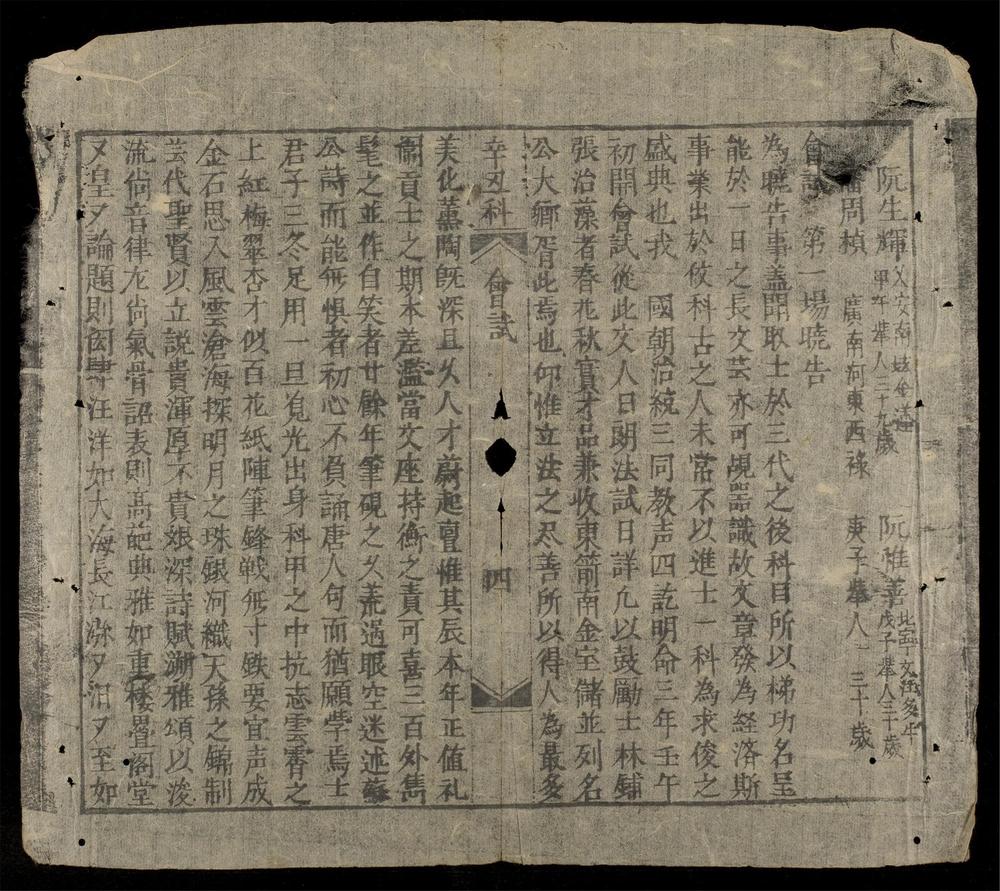 阮生輝 乂安南壇 甲午舉人三十九歲 阮惟華 北寧文江 戊子舉人三十歲
潘周楨 廣南河東西祿 庚子舉人 三十歲
會試第一場曉告
為曉告事盖聞取士於三代之後科目所以梯功名呈
能於一日之長文芸亦可覘器識故文章發為経済斯
事業出於攸科古之人未常不以進士一科為求俊之
盛典也我 國朝治統三同教声四訖明命三年壬午
初開會試從此文人日朗法試日詳凢以鼓勵士林鋪
張治藻者春花秋實才品兼收東箭南金室儲並列名
公大卿胥此焉也仰惟立法之尽善所以得人為最多
辛丑科 會試 四
美化薰陶旣深且久人才蔚起亶惟其辰本年正值礼
闈貢士之期本差濫當文座持衡之責可喜三百外雋
髦之並作自笑者廿餘年筆硯之久荒過眼空迷述蘇
公詩而能無惧者初心不負誦唐人何而猶願孛焉士
君子三冬足用一旦覓光出身科甲之中抗志雲霄之
上紅梅翠杏才似百花紙陣筆鋒戦無寸鉄要宜声成
金石思入風雲滄海探明月之珠銀河織天孫之錦制
芸代聖賢以立説貴渾厚不貴娘深詩賦溯雅頌以浚
流尙音律尤尙氣骨詔表則髙葩典雅如重楼疊阁堂
々皇々論題則閎肆汪洋如大海長江渺々汨々至如